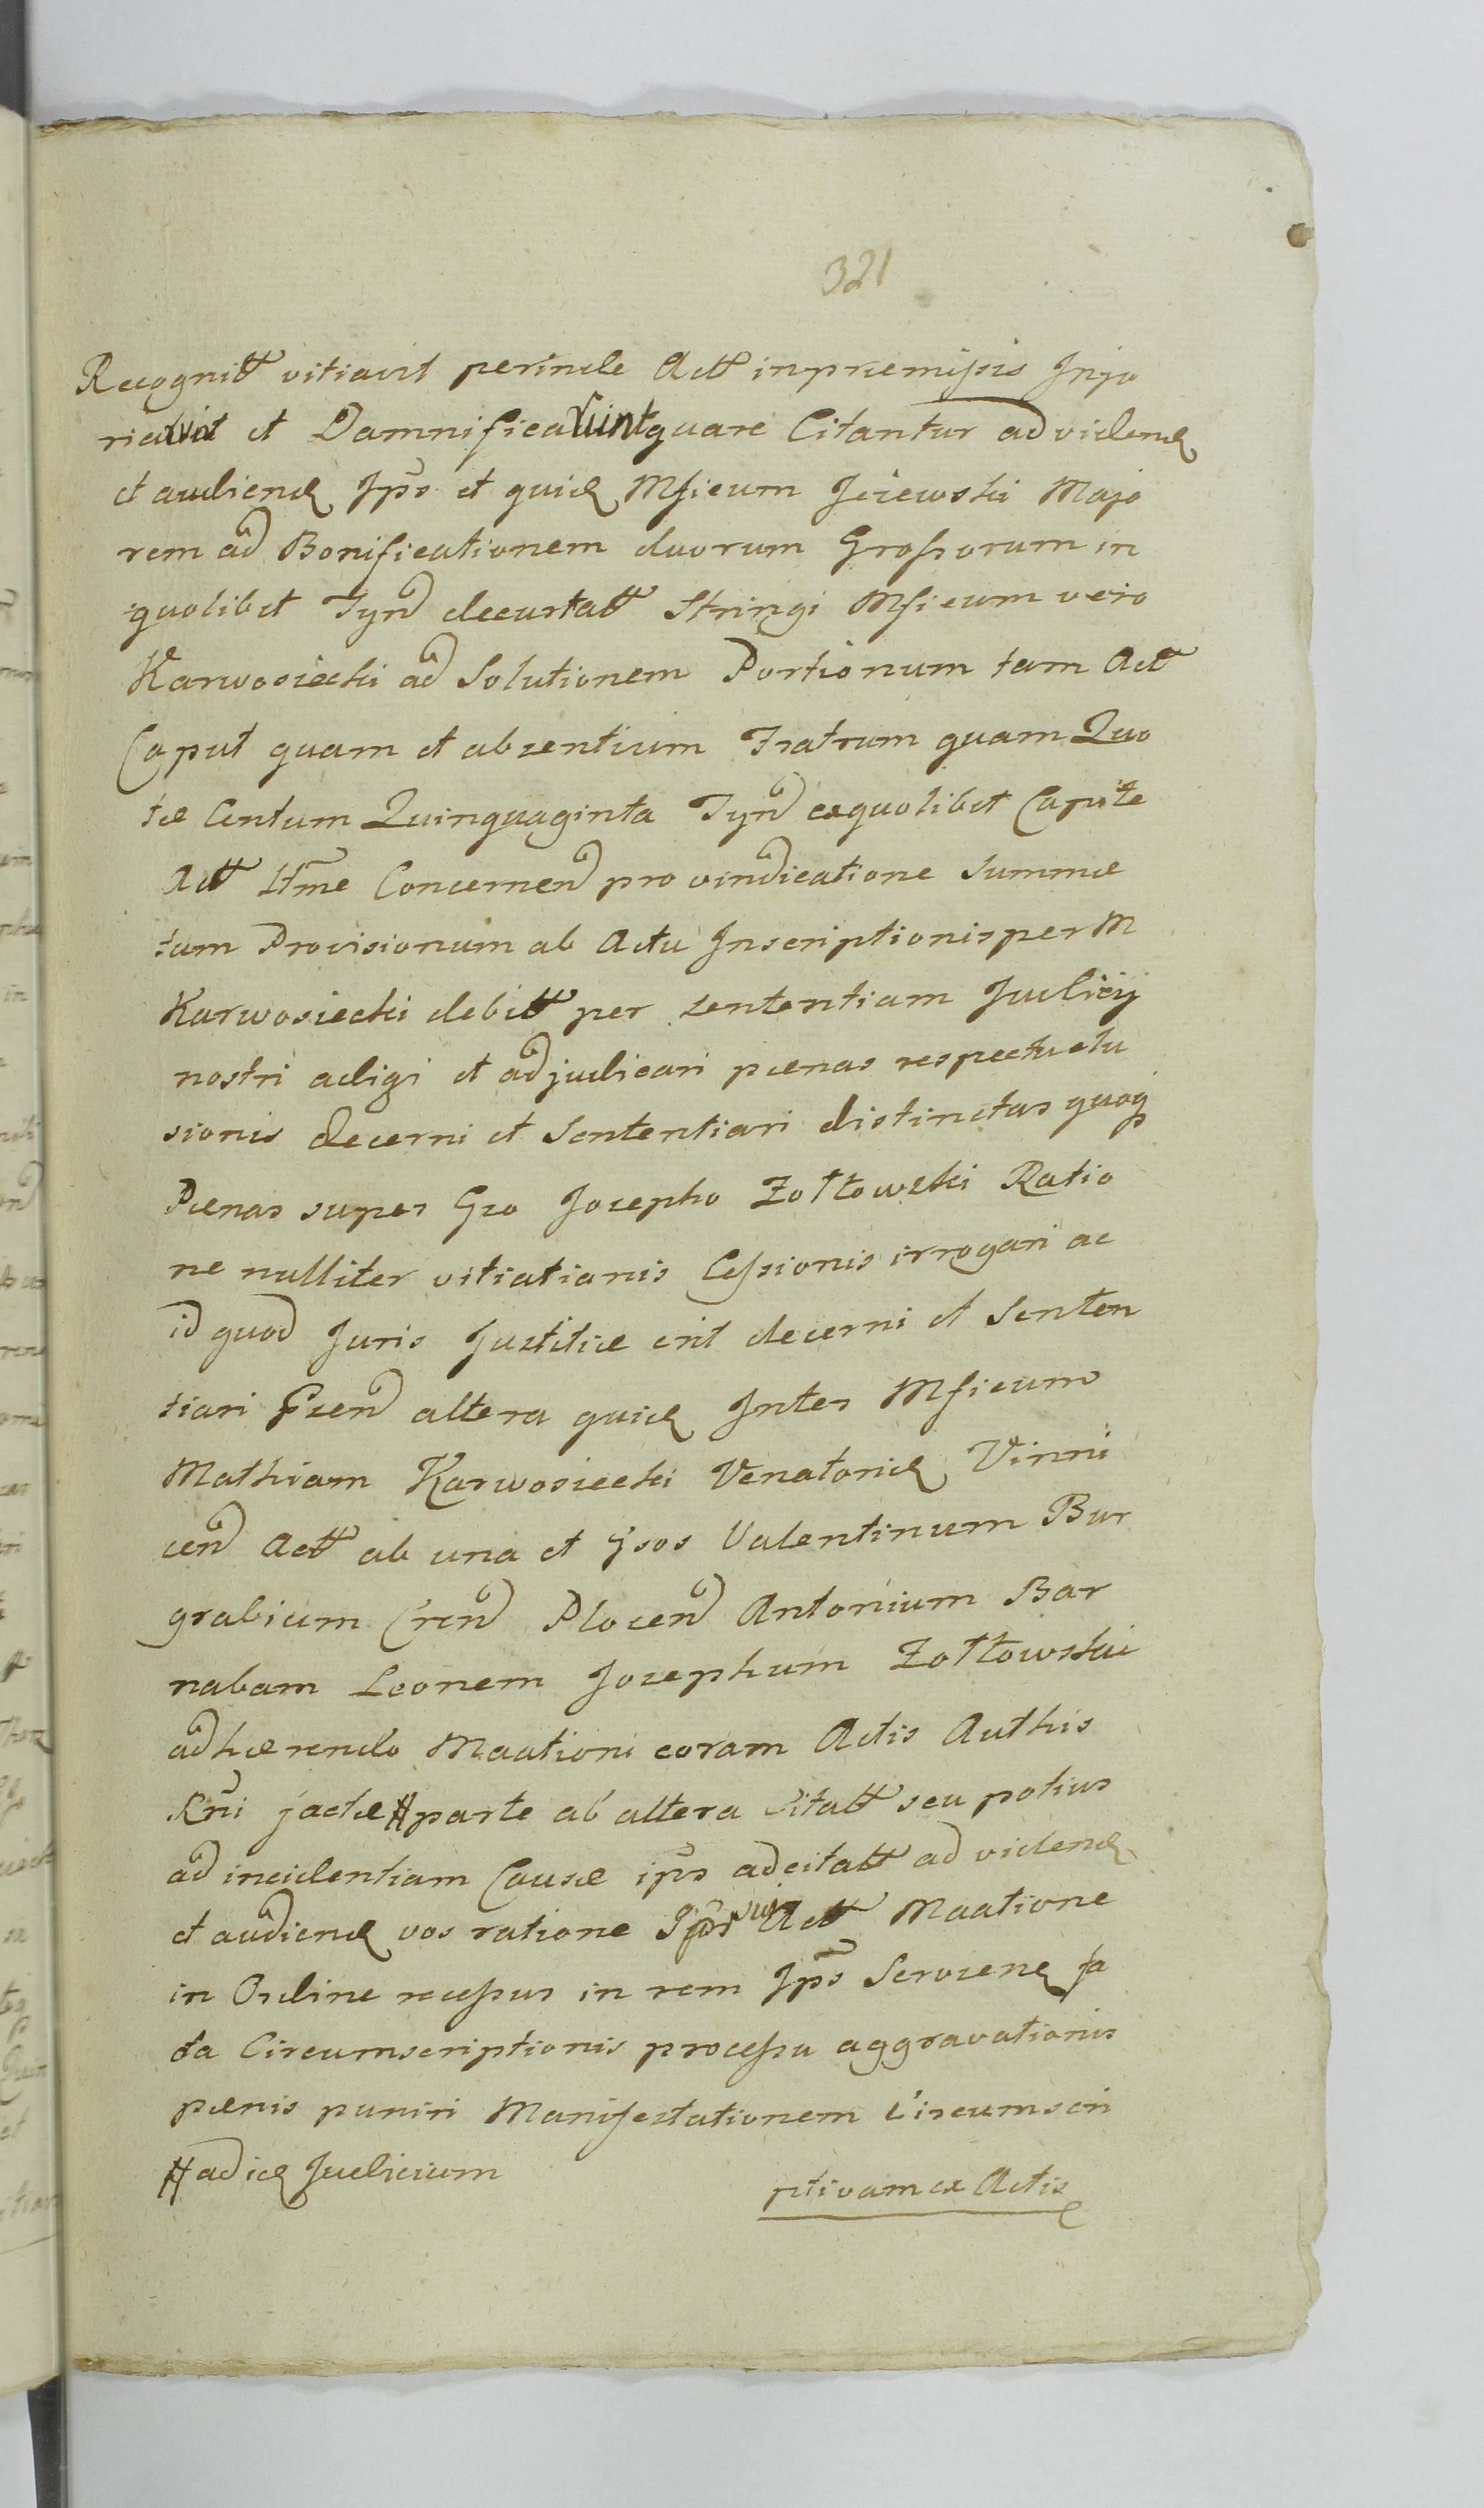 321
Recognitt vitiavit perinde Actt in præmissis Inju
riavit et Damnificarunt quare Citantur ad videnđ
et audienđ Ips̄ et quid̨ Mficum Jeżewski Majo
rem ad Bonificationem duorum Grossorum in
quolibet Tyn̄ decurtatt Stringi Mficum vero
Karwosiecki ad Solutionem Portionum tam Actt
Caput quam et absentium Fratrum quam Quo
tæ Centum Quinquaginta Tyn̄ ex quolibet Capite
Actt Ltm̄e Concernen̄ pro vindicatione Summæ
tum Provisionum ab Actu Inscriptionis per M
Karwosiecki debitt per sententiam Judicij
nostri adigi et adjudicari pænas respectu elu
sionis decerni et Sententiari distinctas quoq̨
Pænas super Gro Josepho Zołtowski Ratio
ne nulliter vitiationis Cessionis irrogari ac
id quod Juris Justitiæ erit decerni et Senten
tiari altera quid̨ Inter Mficum
Mathiam Karwosiecki Venatorid̨ Vinni
cen̄ Actt ab una et Gsos Valentinum Bur
grabium Cren̄ Plocen̄ Antonium Bar
nabam Leonem Josephum Zołtowskie
adhærendo Maationi coram Actis Authis
Rn̄i jactæ # parte ab altera Citatt seu potius
ad incidentiam Causæ ips̄ adcitatt ad videnđ
et audienđ vos ratione Actt Maatione
in Ordine recessus in rem Ips̄ Servienđ fa
cta Circumscriptionis processu aggravationis
pænis puniri Manifestationem Circumscri
# ad id̨ Judicium
ptivam ex Actis